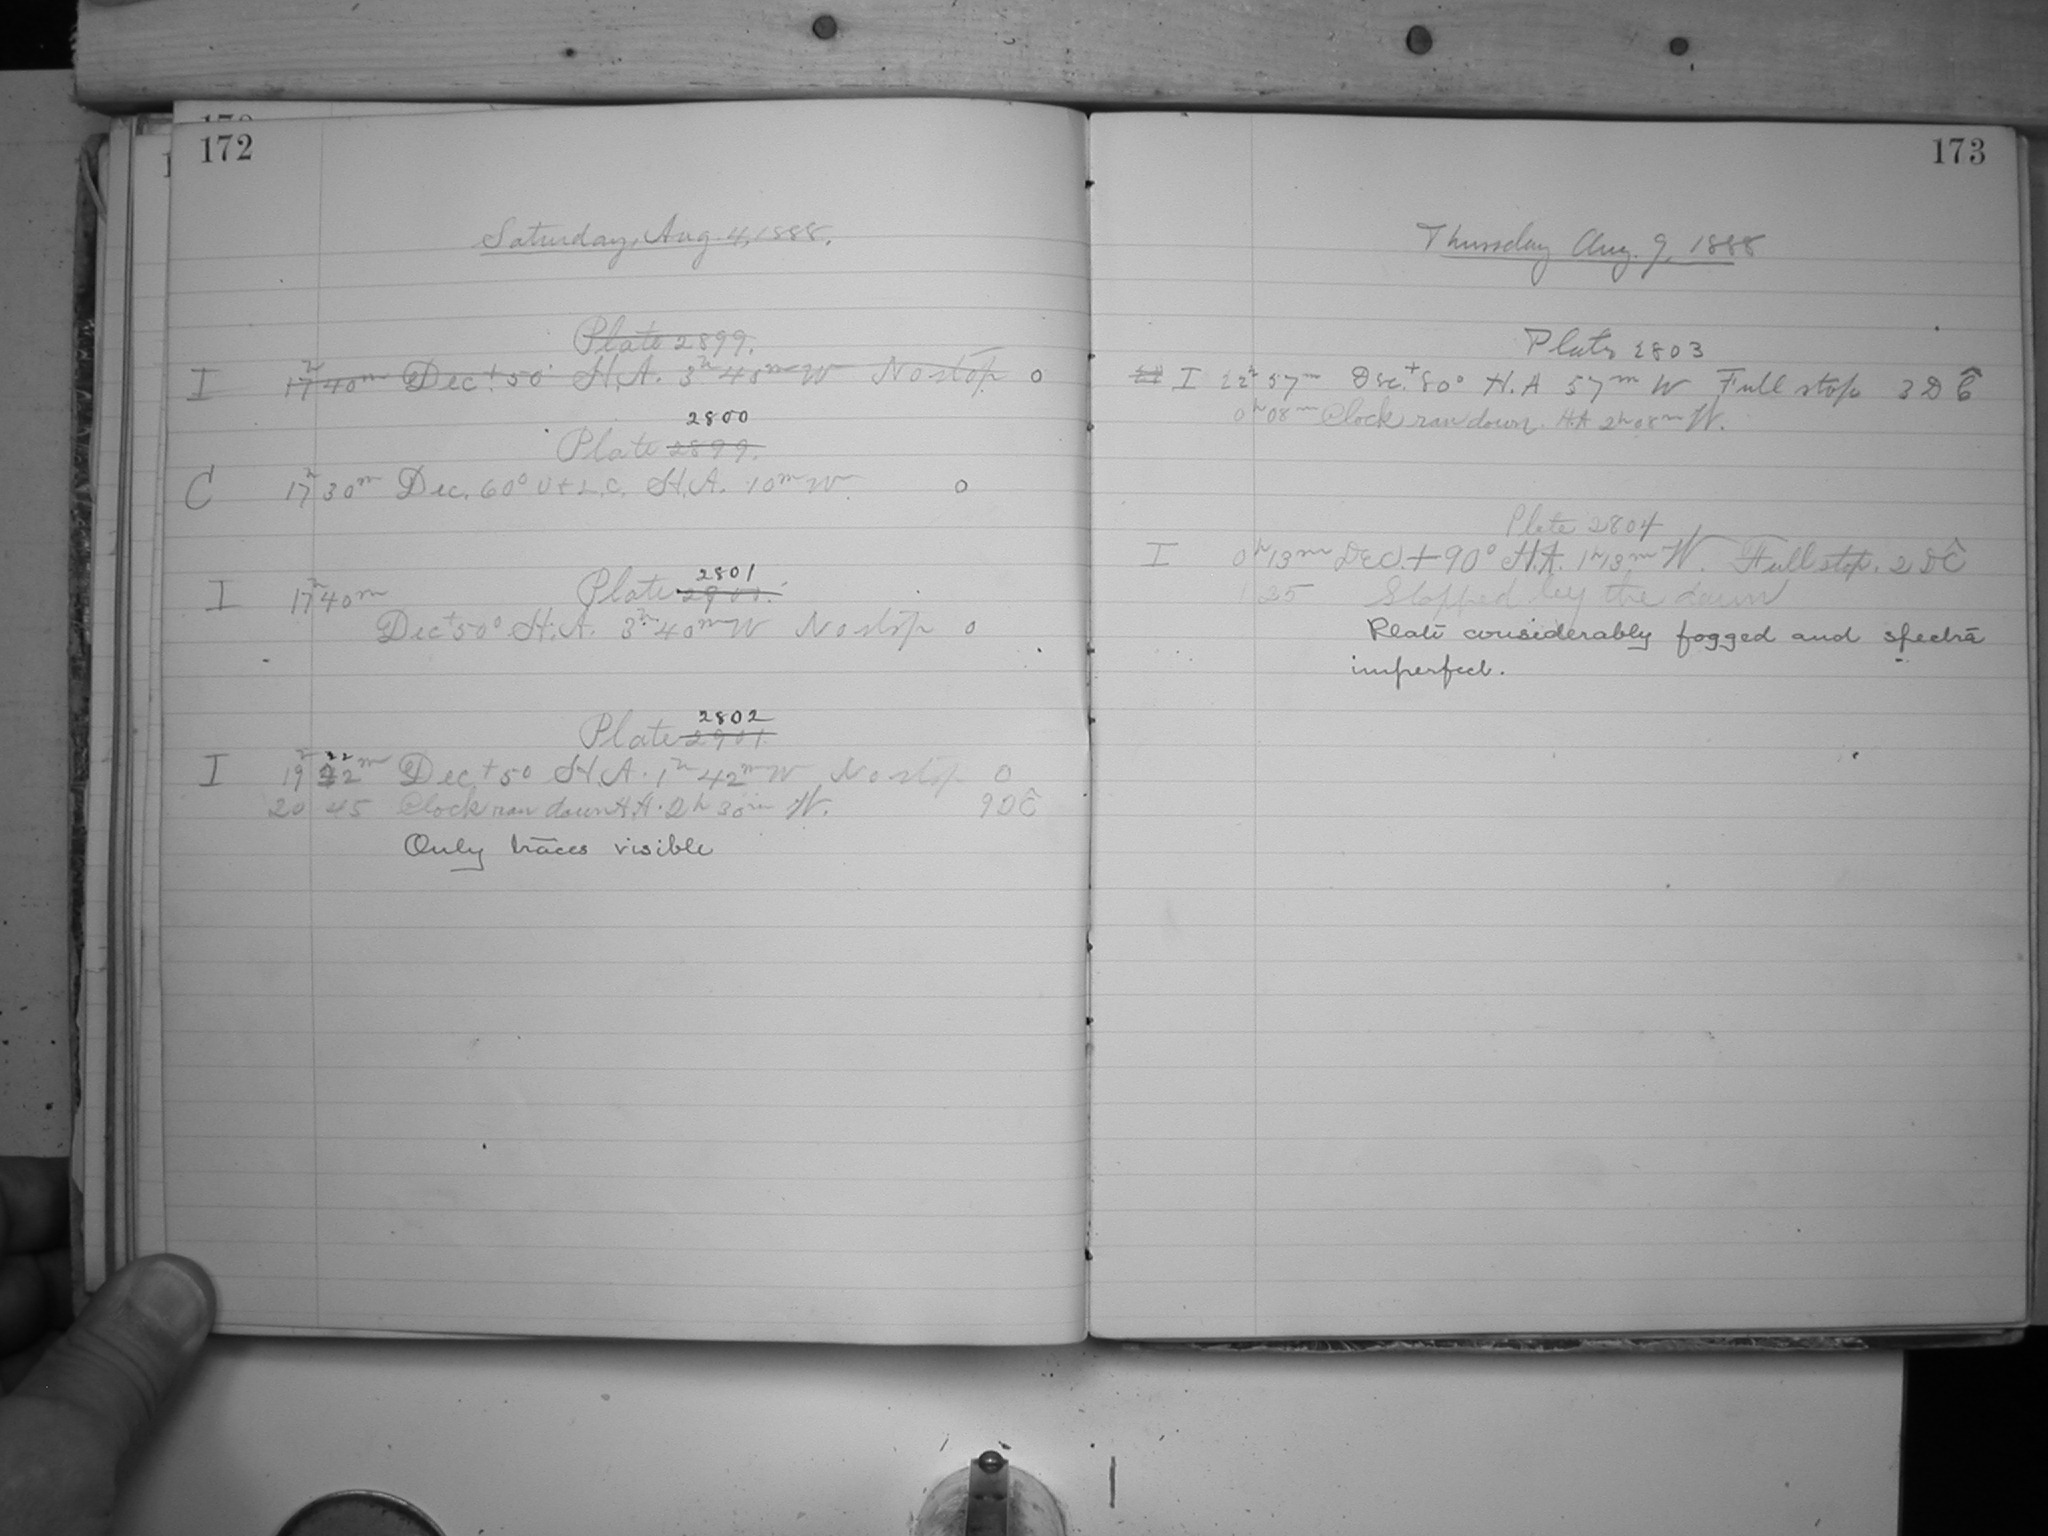 172
Saturday, Aug. 4, 1888.
Plate 2899.
I 17h 40m Dec +50° H.A. 3h 40m W No stop 0
2800
Plate 2899.
C 17h 30m Dec. 60° U + L.C. H.A. 10m W 0
2801
I 17h 40m Plate 2900.
Dec +50° H.A. 3h 40m W No stop 0
2802
Plate 2901.
I 19h 22m Dec +50 H.A. 1h 42m W No stop 0
20 45 Clock ran down H.A. 2h 30m W. 9DĈ
Only traces visible
173
Thursday Aug. 9, 1888
Plate 2803
I 22h 57m Dec. +80° H.A 57m W Full stop 3DĈ
0h 08m Clock ran down. H.A 2h 08m W.
Plate 2804
I 0h 13m Dec. +90° H.A. 1h 13m W. Full stop. 2DĈ
1 25 Stopped by the dawn
Plate considerably fogged and spectra
imperfect.